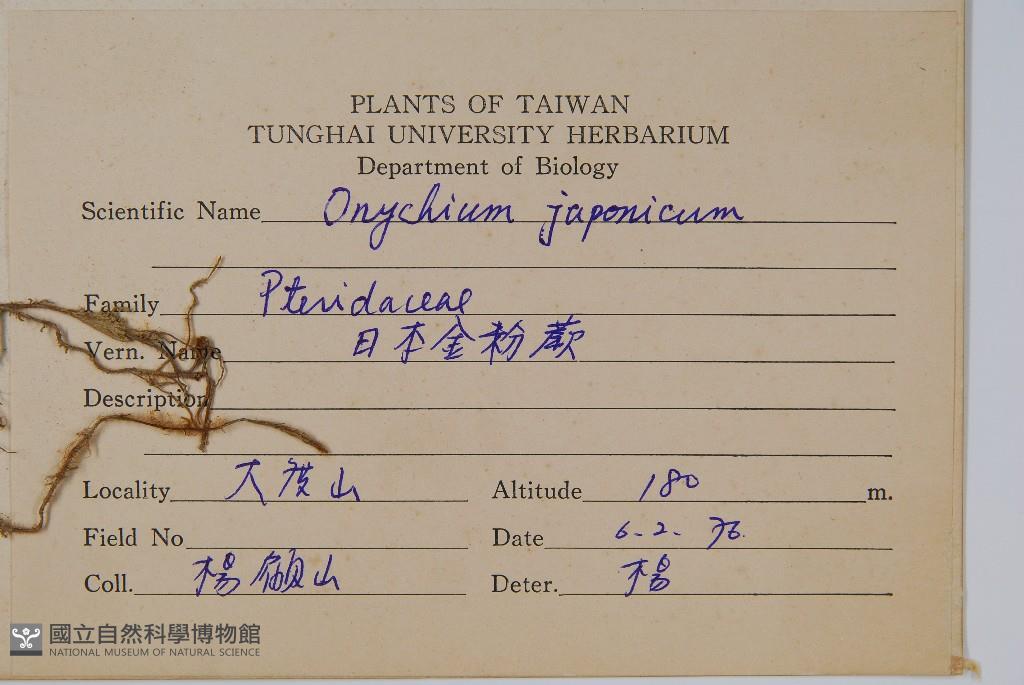 PLANTS OF TAIWAN
TUNGHAI UNIVERSITY HERBARIUM
Department of Biology
Scientific Name Onychium japonicum
Family Pteridaceae
Vern. Name 日本金粉蕨
Description
Locality 大度山 Altitude 180 m.
Field No Date 6-2-76.
Coll. 楊顧山 Deter. 楊
國立自然科學博物館
NATIONAL MUSEUM OF NATURAL SCIENCE